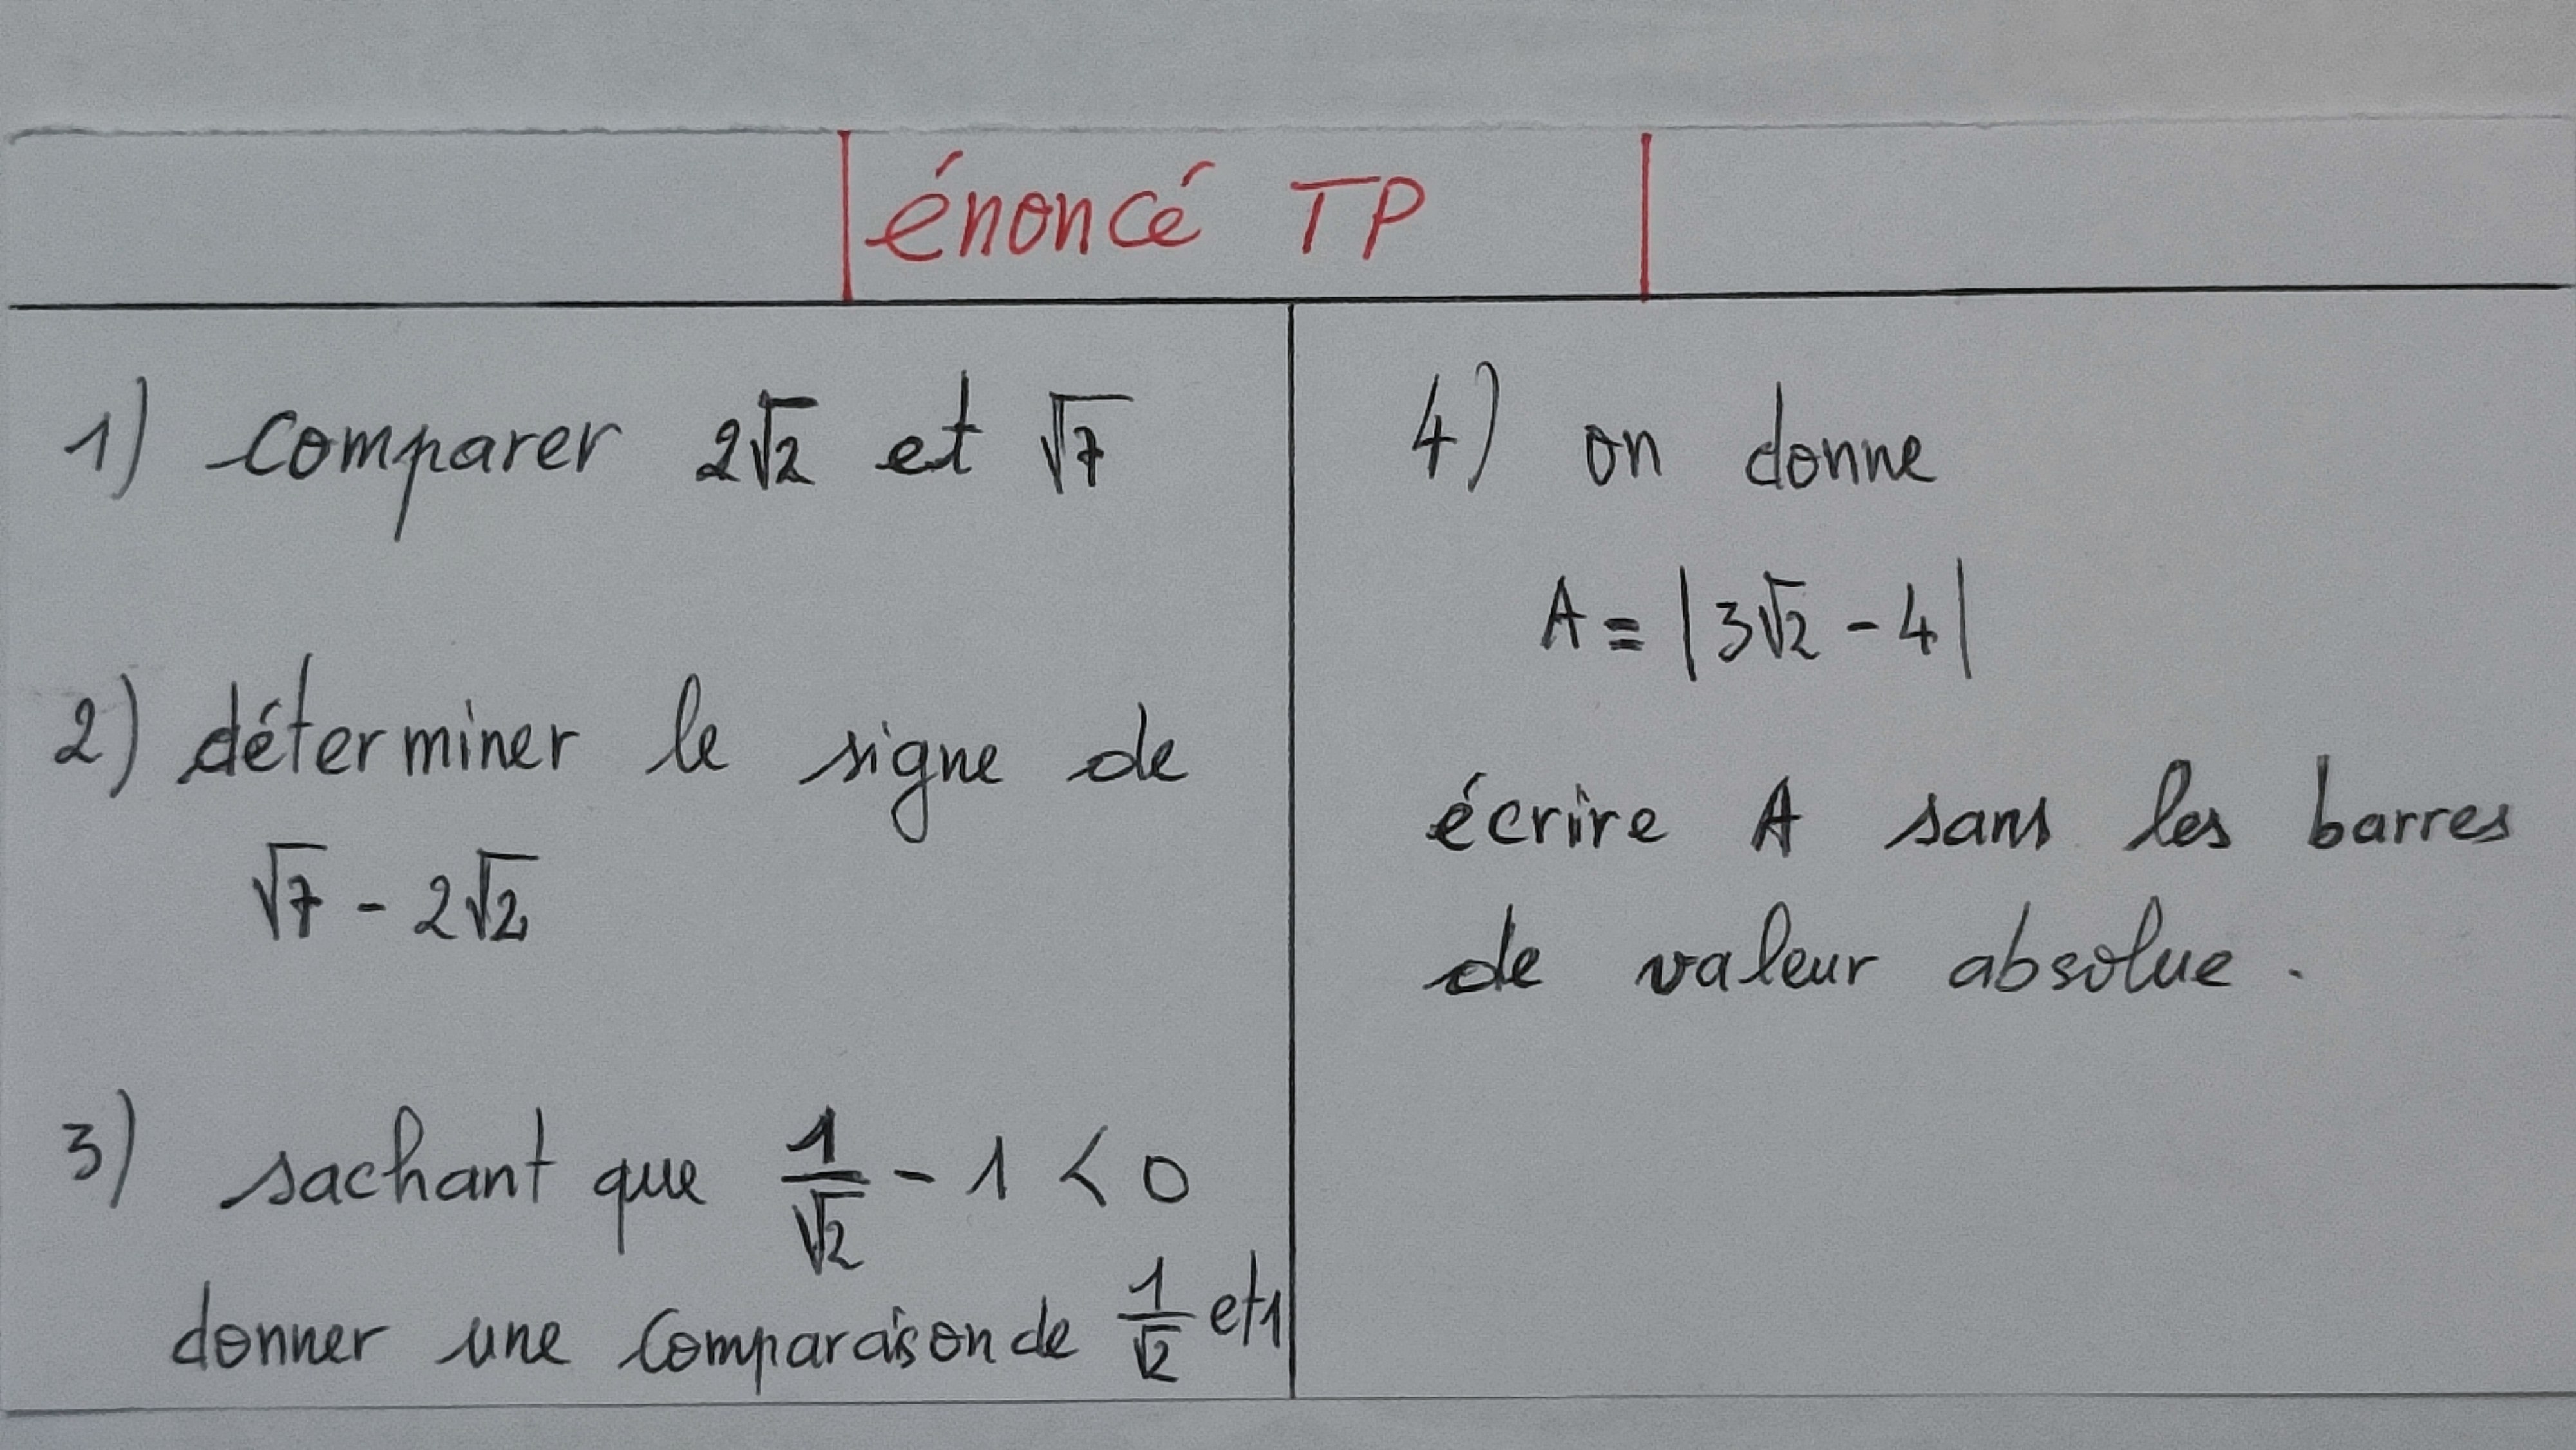 énoncé TP
1) comparer 2√2 et √7
2) déterminer le signe de
√7 - 2√2
3) sachant que 1/√2 - 1 < 0
donner une comparaison de 1/√2 et 1
4) on donne
A = |3√2 - 4|
écrire A sans les barres
de valeur absolue.